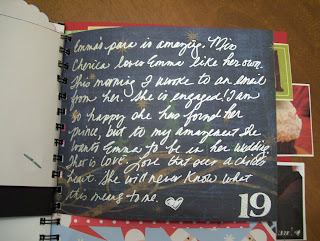 Emma's para is amazing. Miss
Cherica loves Emma like her own.
This morning I awoke to an email
from her. She is engaged! I am
so happy she has found her
prince, but to my amazement she
wants Emma to be in her wedding.
That is LOVE. Love that over a child's
heart. She will never know what
this means to me.
19